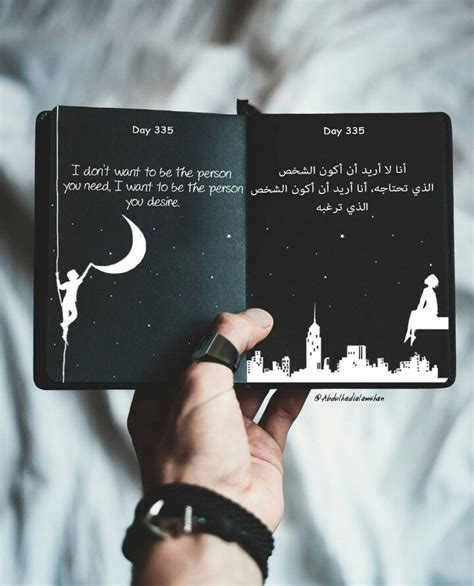 Day 335
I don't want to be the person
you need, I want to be the person
you desire.
Day 335
أنا لا أريد أن أكون الشخص
الذي تحتاجه، أنا أريد أن أكون الشخص
الذي ترغبه
@Abdulhadialamshan